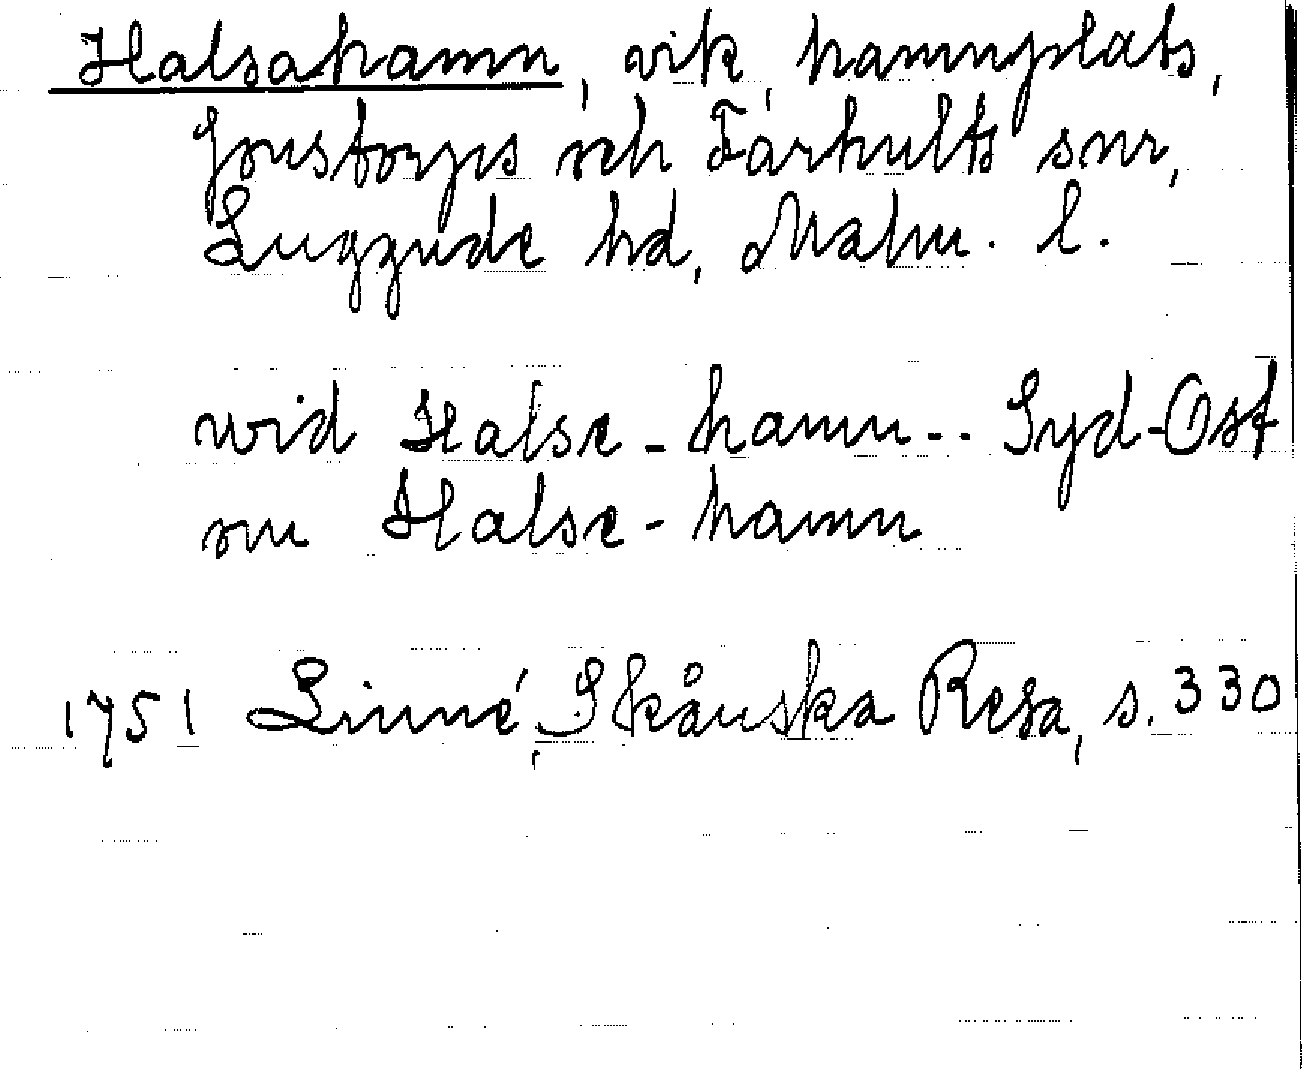 Halsahamn, vik, hamnplats,
Jonstorps och Farhults snr,
Luggude hd, Malm. l.
wid Halse-hamn -- Syd-Ost
om Halse-hamn
1751 Linné, Skånska Resa, s. 330